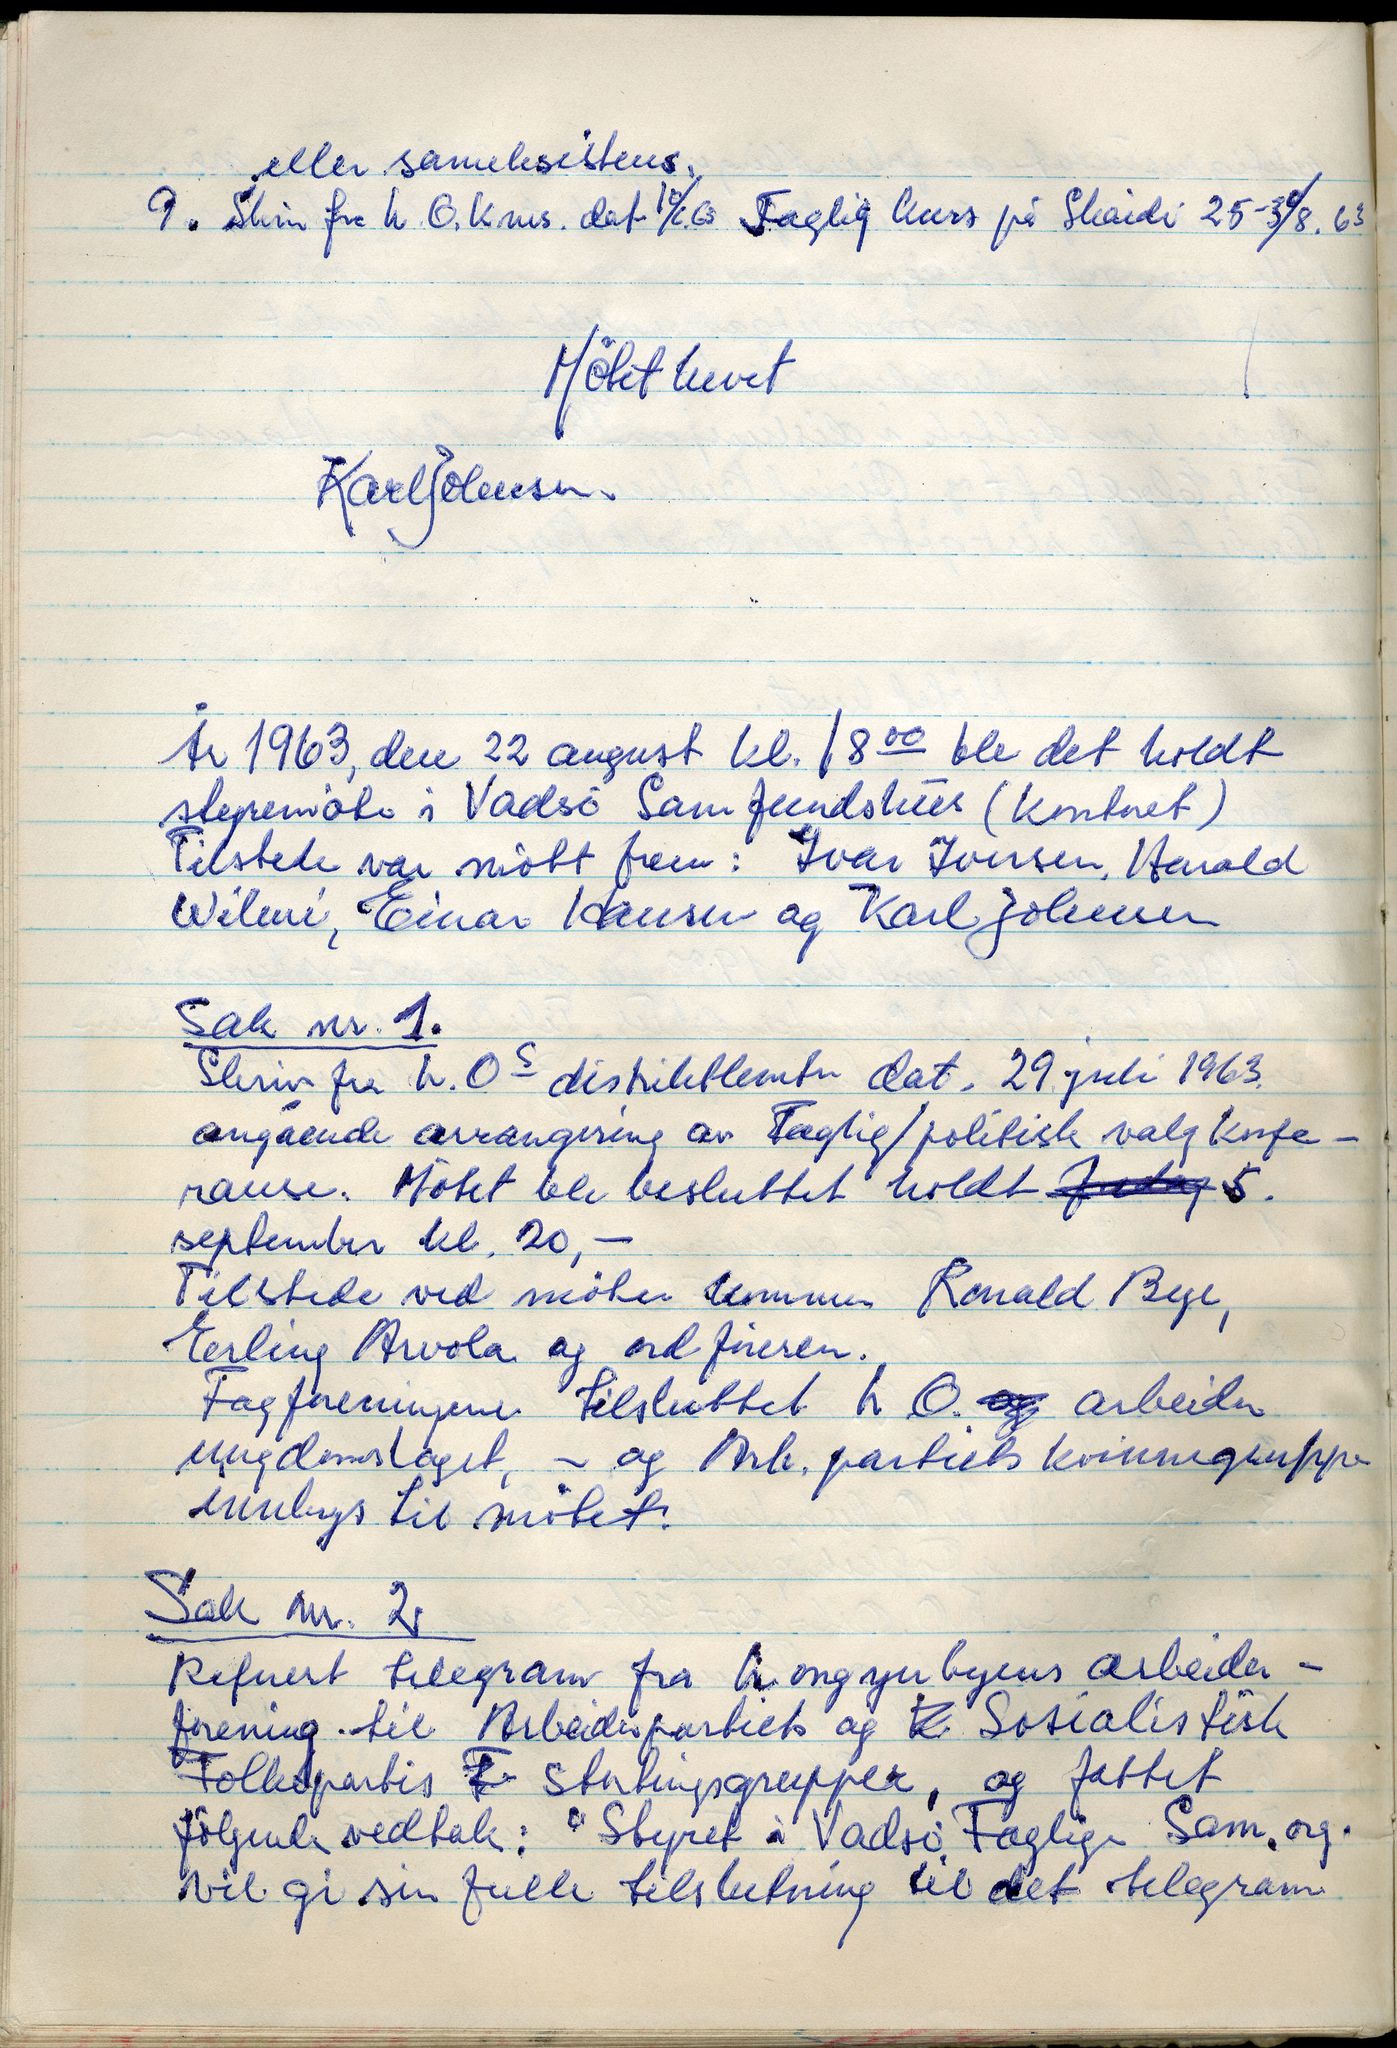 eller sameksistens.
9. Skriv fra L.O. kns. dat Faglig kurs på Skaidi 25-30/8. 63
Möbet hevet
Karl Johnsen.
År 1963, den 22 august kl. 18 00 ble det holdt
styremöte i Vadsö Samfundshus (kontoret)
Tilstede var möbt frem: Ivar Iversen, Harald
Wilmi, Einar Hansen og Karl Johnsen
Sak nr. 1.
Skriv fra L.Os distriktkontor dat. 29 juli 1963.
angående arrangering av Faglig/politisk valg konfe-
ranse. Möbet ble besluttet holdt fredag 5.
september kl. 20,-
Tilstede ved möten kommer Ronald Bye,
Eerling Arvola og ordföreren.
Fagforeningene tilsluttet L O. og arbeider
ungdomslaget, - og Arb. partiets kvinnegruppe
innbys til möbet.
Sak nr. 2.
Referert telegram fra Longyerbyens arbeider-
forening til Arbeiderpartiets og Sosialistisk
Folkepartis Stortingsgrupper, og fattet
fölgende vedtak: "Styret i Vadsö Faglige Sam.org.
vil gi sin fulle tilslutning til det telegram